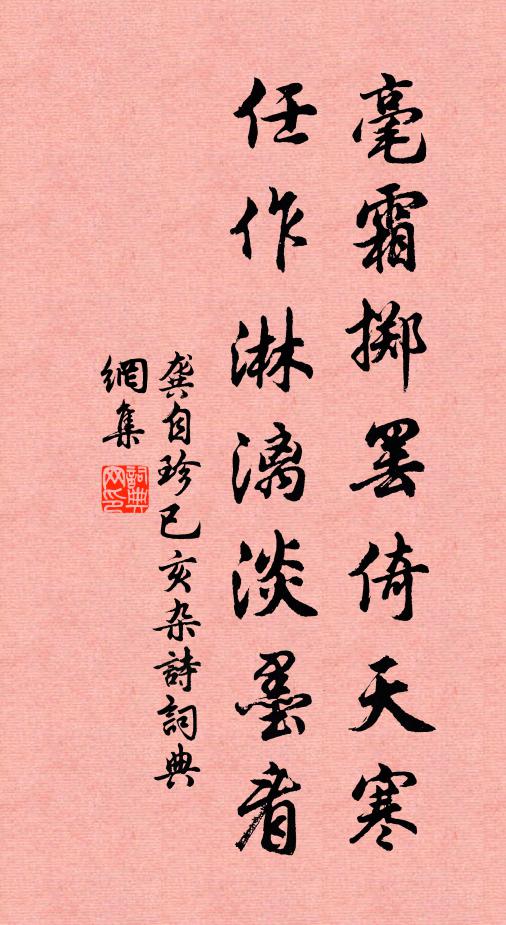 毫霜掷罢倚天寒
任作淋漓淡墨看
龚自珍己亥杂詩詞典
網集
詞典网印